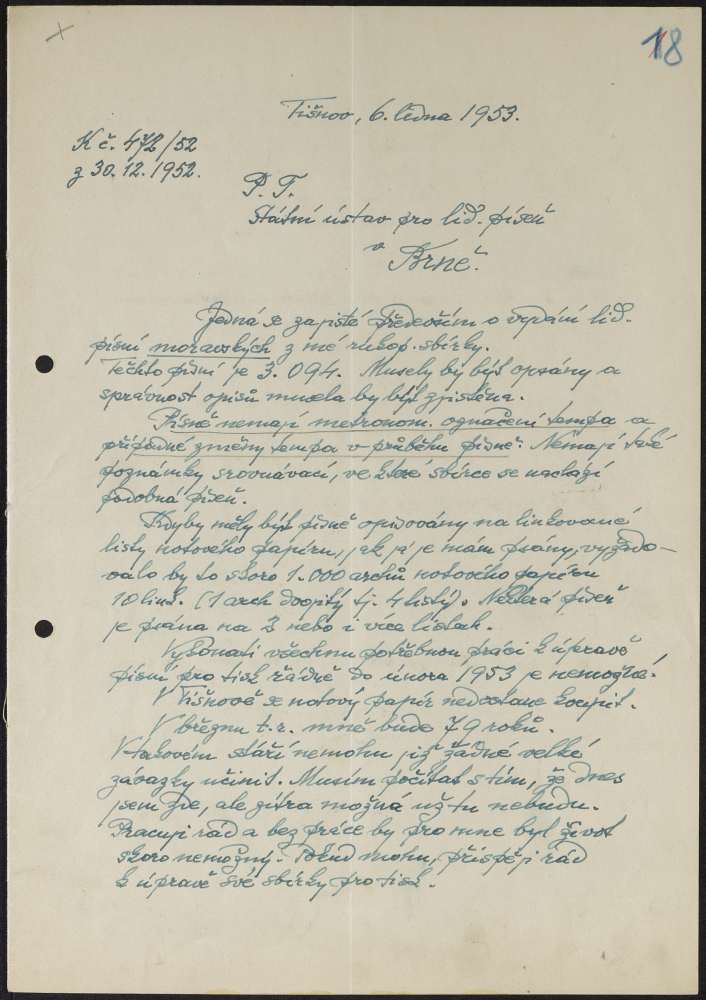 18
Tišnov, 6. ledna 1953.
K č. 472/52
z 30. 12. 1952.
P. T.
Státní ústav pro lid. píseň
v
Brně.
Jedná se zajisté především o vydání lid.
písní moravských z mé rukop. sbírky.
Těchto písní je 3.094. Musely by být opsány a
správnost opisů musela by být zjištěna.
Písně nemají metronom. označení tempa a
případné změny tempa v průběhu písně. Nemají také
poznámky srovnávací, ve které sbírce se nachází
podobná píseň.
Kdyby měly být písně opisovány na linkované
listy notového papíru, jak já je mám psány, vyžado-
valo by to skoro 1.000 archů notového papíru
10 link. (1 arch dvojitý tj. 4 listy). Některá píseň
je psána na 2 nebo i více listech.
Vykonati všechnu potřebnou práci k úpravě
písní pro tisk řádně do února 1953 je nemožné.
V Tišnově se notový papír nedostane koupit.
V březnu t. r. mně bude 79 roků.
V takovém stáří nemohu již žádné velké
závazky učinit. Musím počítat s tím, že dnes
jsem zde, ale zítra možná už tu nebudu.
Pracuji rád a bez práce by pro mne byl život
skoro nemožný. Pokud mohu, přispěji rád
k úpravě své sbírky pro tisk.